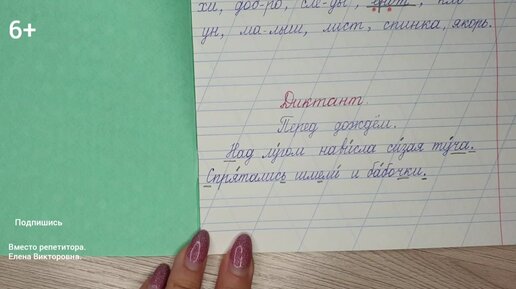 6+
хи, доб-ро, сле-ды,
ун, ма-лыш, лист, спинка, якорь.
Диктант.
Перед дождём.
Над лугом нависла сизая туча.
Спрятались шмели и бабочки.
Подпишись
Вместо репетитора.
Елена Викторовна.